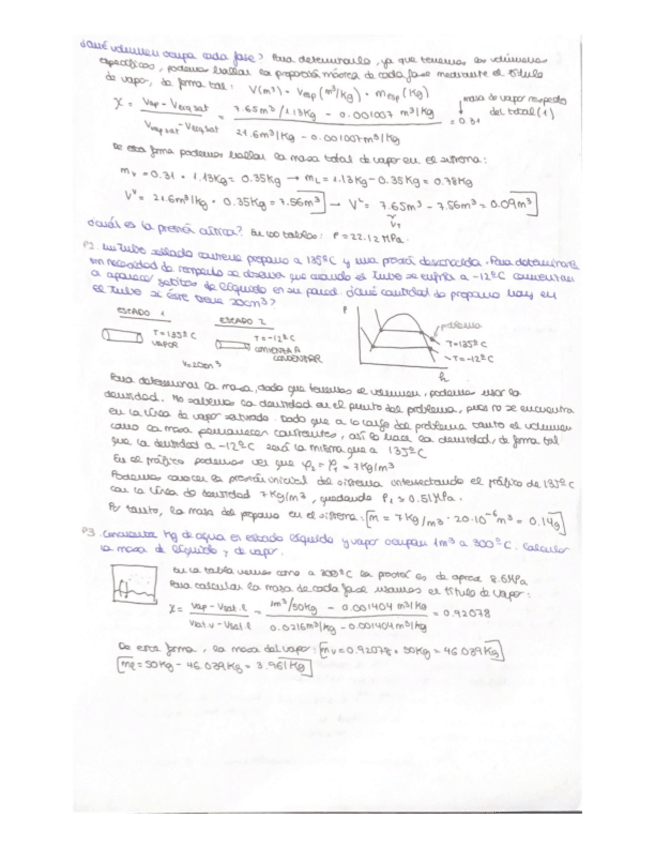 ¿Qué volumen ocupa cada fase? Para determinarlo, ya que tenemos los volúmenes
específicos, podemos hallar la proporción másica de cada fase mediante el título
de vapor, de forma tal: V(m³) = Vesp (m³/kg) · mesp (kg)
X = Vap - Vliq sat / Vvap sat - Vliq sat = 7.65m³/1.13kg - 0.001007 m³/kg / 21.6m³/kg - 0.001007m³/kg = 0.31
masa de vapor respecto
del total (1)
De esta forma podemos hallar la masa total de vapor en el sistema:
mv = 0.31 · 1.13kg = 0.35kg → mL = 1.13kg - 0.35kg = 0.78kg
Vv = 21.6m³/kg · 0.35kg = 7.56m³ → VL = 7.65m³ - 7.56m³ = 0.09m³
VT
¿Cuál es la presión crítica? En las tablas: P = 22.12 MPa.
P2. Un tubo sellado contiene propano a 135ºC y una presión desconocida. Para determinarla
sin necesidad de romperlo se observa que cuando el tubo se enfría a -12ºC comienzan
a aparecer gotitas de líquido en su pared. ¿Qué cantidad de propano hay en
el tubo si éste tiene 20cm³?
ESTADO 1
T = 135ºC
VAPOR
ESTADO 2
T = -12ºC
COMIENZA A
CONDENSAR
V = 20cm³
P
problema
T = 135ºC
T = -12ºC
h
Para determinar la masa, dado que tenemos el volumen, podemos usar la
densidad. No sabemos la densidad en el punto del problema, pues no se encuentra
en la línea de vapor saturado. Dado que a lo largo del problema tanto el volumen
como la masa permanecen constantes, así lo hace la densidad, de forma tal
que la densidad a -12ºC será la misma que a 135ºC
En el gráfico podemos ver que φ2 = φ1 = 7kg/m³
Podemos conocer la presión inicial del sistema intersectando el gráfico de 135ºC
con la línea de densidad 7kg/m³, quedando P1 ≈ 0.51MPa.
Por tanto, la masa del propano en el sistema: m = 7kg/m³ · 20·10⁻⁶m³ = 0.14g
P3. Cincuenta kg de agua en estado líquido y vapor ocupan 1m³ a 300ºC. Calcular
la masa de líquido y de vapor.
En la tabla vemos como a 300ºC la presión es de aprox 8.6MPa
Para calcular la masa de cada fase usamos el título de vapor:
X = Vap - Vsat.l / Vsat.v - Vsat.l = 1m³/50kg - 0.001404 m³/kg / 0.0216m³/kg - 0.001404m³/kg = 0.92078
De esta forma, la masa del vapor: mv = 0.92078 · 50kg = 46.039kg
ml = 50kg - 46.039kg = 3.961kg